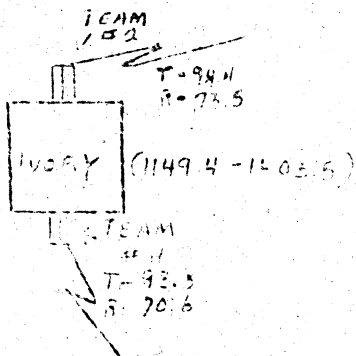 TEAM
#2
T-94.4
R-73.5
IVORY (1149.4 -1203.5)
TEAM
T-93.5
R-70.6